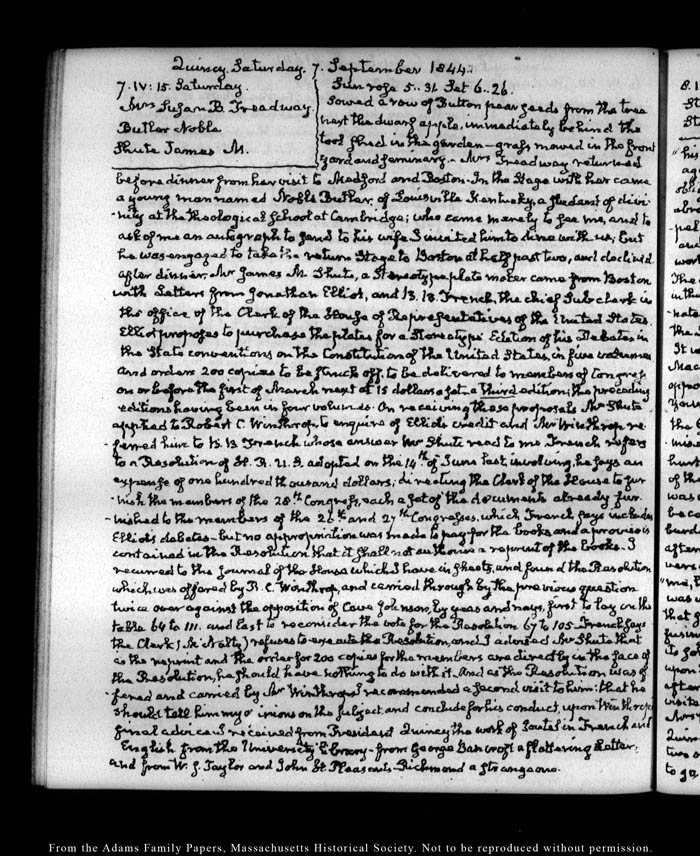 Quincy. Saturday. 7. September 1844.
7. IV: 15. Saturday.
Mrs Susan B. Treadway
Butler Noble
Shute James M.
Sun rose 5..31 Set 6..26.
Sowed a row of Button pear seeds from the tree
next the dwarf apple, immediately behind the
tool shed in the garden - grass mowed in the front
yard and seminary. - Mrs Treadway returned
before dinner from her visit to Medford and Boston. In the Stage with her came
a young man named Noble Butler, of Louisville Kentucky, a student of divi-
-nity at the theological School at Cambridge; who came merely to see me, and to
ask of me an autograph to send to his wife. I invited him to dine with us; but
he was engaged to take the return Stage to Boston at half past two, and declined.
after dinner, Mr James M. Shute, a Stereotype plate maker came from Boston
with Letters from Jonathan Elliot, and B. B. French, the chief Sub clerk in
the office of the Clerk of the House of Representatives of the United States.
Elliot proposes to purchase the plates for a Stereotype Edition of his Debates in
the State conventions on the Constitution of the United States, in five volumes
and orders 200 copies to be struck off, to be delivered to members of Congress
on or before the first of March next at 15 dollars a set - a third edition; the preceding
editions having been in four volumes. On receiving these proposals Mr Shute
applied to Robert C. Winthrop, to enquire of Elliots credit and Mr Winthrop re-
-ferred him to B. B. French whose answer Mr Shute read to me. French refers
to a Resolution of H. R. U. S. adopted on the 14th of June last, involving, he says an
expense of one hundred thousand dollars; directing the Clerk of the House to fur
-nish the members of the 28th Congress, each a set of the documents already fur
-nished to the members of the 26th and 27th Congresses, which French says includes
Elliots debates - but no appropriation was made to pay for the books and a proviso is
contained in the Resolution that it shall not authorise a reprint of the books. I
recurred to the Journal of the House which I have in sheets, and found the Resolution
which was offered by R. C. Winthrop, and carried through by the previous question
twice over against the opposition of Cave Johnson, by yeas and nays, first to lay on the
table. 64 to 111. and last to reconsider the vote for the Resolution 67 to 105. French says
the Clerk (McNulty) refuses to execute the Resolution, and I advised Mr Shute that
as the reprint and the order for 200 copies for the members are directly in the face of
the Resolution, he should have nothing to do with it. And as the Resolution was of
-fered and carried by Mr Winthrop I recommended a second visit to him: that he
should tell him my opinions on the subject and conclude for his conduct, upon Winthrop's
final advice. I received from President Quincy the work of in French and
English from the University Library - from George Bancroft a flattering Letter,
and from W. J. Taylor and John H. Pleasants - Richmond a strange one.
From the Adams Family Papers, Massachusetts Historical Society. Not to be reproduced without permission.